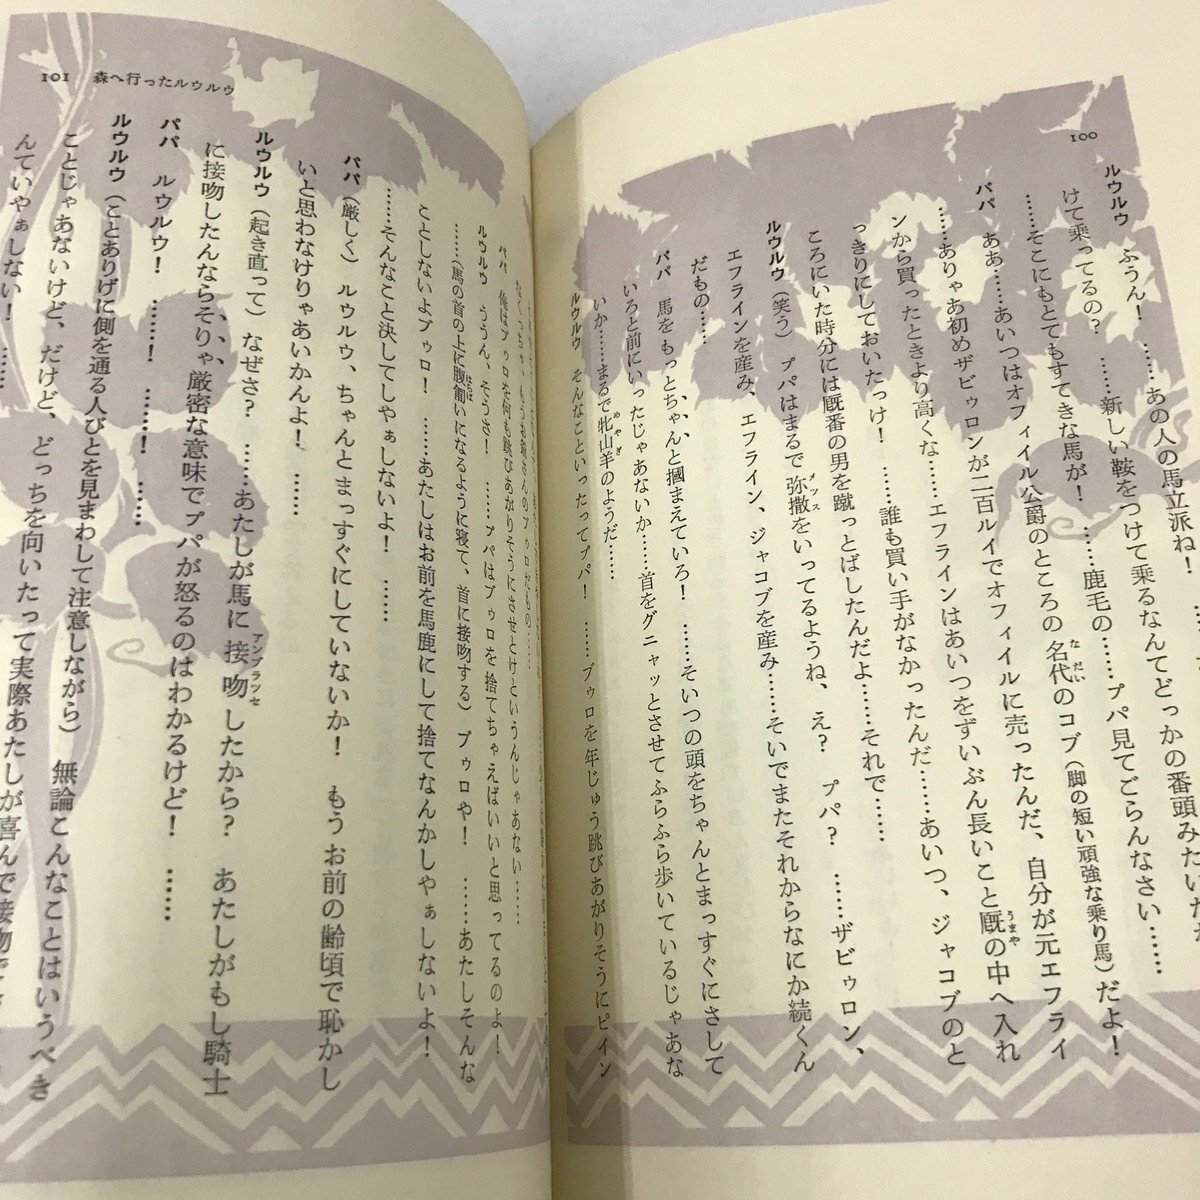 100
ルウルウ　ふうん！　……あの人の馬立派ね！
けて乗ってるの？　……新しい鞍をつけて乗るなんてどっかの番頭みたいだ
……そこにもとてもすてきな馬が！　……鹿毛の……プパ見てごらんなさい……
パパ　ああ……あいつはオフィイル公爵のところの名代のコブ（脚の短い頑強な乗り馬）だよ！
……ありゃあ初めザビゥロンが二百ルイでオフィイルに売ったんだ、自分が元エフライ
ンから買ったときより高くな……エフラインはあいつをずいぶん長いこと厩の中へ入れ
っきりにしておいたっけ！　……誰も買い手がなかったんだ……あいつ、ジャコブのと
ころにいた時分には厩番の男を蹴っとばしたんだよ……それで……
ルウルウ（笑う）　プパはまるで弥撒をいってるようね、え？　プパ？　……ザビゥロン、
エフラインを産み、エフライン、ジャコブを産み……そいでまたそれからなにか続くん
だもの……
パパ　馬をもっとちゃんと摑まえていろ！　……そいつの頭をちゃんとまっすぐにさして
いろと前にいったじゃあないか……首をグニャッとさせてふらふら歩いているじゃあな
いか……まるで牝山羊のようだ……
ルウルウ　そんなこといったってプパ！　……ブゥロを年じゅう跳びあがりそうにピイン
101　森へ行ったルウルウ
パパ　俺はブゥロを何も跳びあがりそうにさせとけというんじゃあない……
ルウルウ　ううん、そうさ！　……プパはブゥロを捨てちゃえばいいと思ってるのよ！
……（馬の首の上に腹匍いになるように寝て、首に接吻する）　ブゥロや！　……あたしそんな
ことしないよブゥロ！　……あたしはお前を馬鹿にして捨てなんかしやぁしないよ！
……そんなこと決してしやぁしないよ！　……
パパ（厳しく）　ルウルウ、ちゃんとまっすぐにしていないか！　もうお前の齢頃で恥かし
いと思わなけりゃあいかんよ！　……
ルウルウ（起き直って）　なぜさ？　……あたしが馬に接吻したから？　あたしがもし騎士
に接吻したんならそりゃ、厳密な意味でプパが怒るのはわかるけど！　……
パパ　ルウルウ！　……！　……！　……
ルウルウ（ことありげに側を通る人びとを見まわして注意しながら）　無論こんなことはいうべき
ことじゃあないけど、だけど、どっちを向いたって実際あたしが喜んで接吻で
んていやぁしない！　……